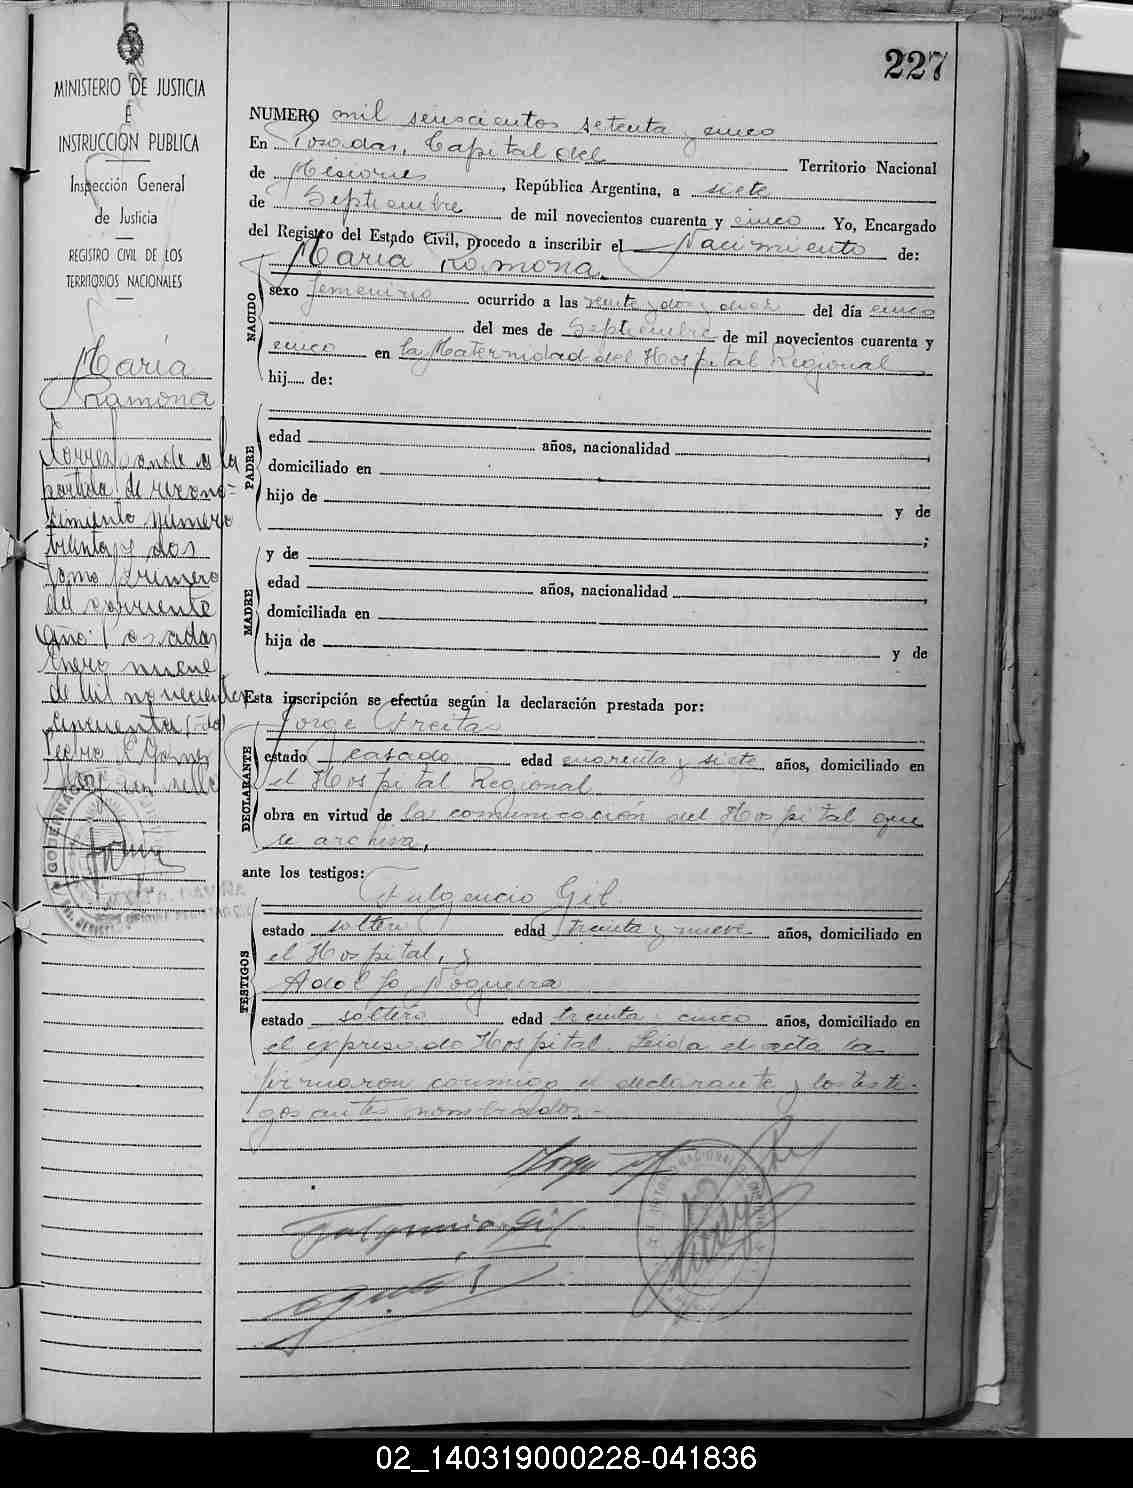 227
MINISTERIO DE JUSTICIA
E
INSTRUCCION PUBLICA
Inspección General
de Justicia
REGISTRO CIVIL DE LOS
TERRITORIOS NACIONALES
María
Ramona
Corresponde a la
partida de recono=
cimiento número
treinta y dos
tomo primero
del corriente
año. Posadas
Enero nueve
de mil novecientos
cincuenta
NUMERO mil seiscientos setenta y cinco
En Posadas, Capital del Territorio Nacional
de Misiones, República Argentina, a siete
de Septiembre de mil novecientos cuarenta y cinco. Yo, Encargado
del Registro del Estado Civil, procedo a inscribir el Nacimiento de:
María Ramona.
NACIDO
sexo femenino ocurrido a las veinte y dos y diez del día cinco
del mes de Septiembre de mil novecientos cuarenta y
cinco en la Maternidad del Hospital Regional
hij..... de:
PADRE
edad años, nacionalidad
domiciliado en
hijo de y de
;
MADRE
y de
edad años, nacionalidad
domiciliada en
hija de y de
Esta inscripción se efectúa según la declaración prestada por:
Jorge Freitas
DECLARANTE
estado casado edad cuarenta y siete años, domiciliado en
el Hospital Regional
obra en virtud de la comunicación del Hospital que
se archiva,
ante los testigos:
Fulgencio Gil
TESTIGOS
estado soltero edad treinta y nueve años, domiciliado en
el Hospital, y
Adolfo Nogueira
estado soltero edad treinta y cinco años, domiciliado en
el expresado Hospital. Leida el acta la
firmaron conmigo el declarante y los testi-
gos antes nombrados.-
Jorge
Fulgencio Gil
02_140319000228-041836